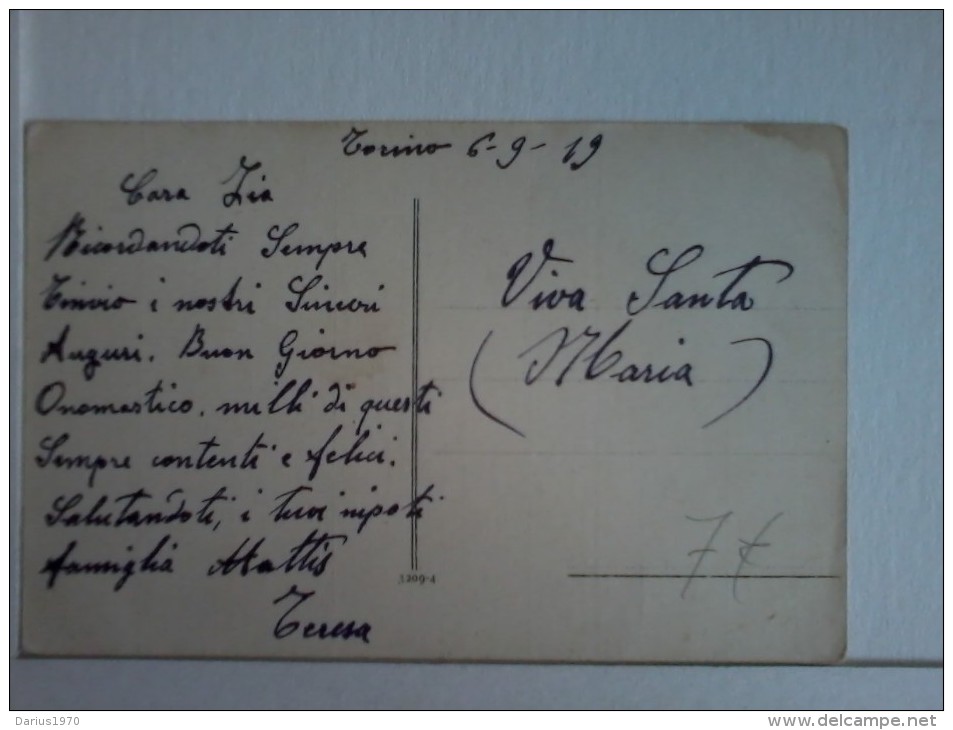 Torino 6-9-19
Cara Zia
Ricordandoti Sempre
T'invio i nostri Sinceri
Auguri. Buon Giorno
Onomastico. milli di questi
Sempre contenti e felici.
Salutandoti, i tuoi nipoti
famiglia Mattis
Teresa
Viva Santa
(Maria)
3209-4
7 €
Darius1970
www.delcampe.net